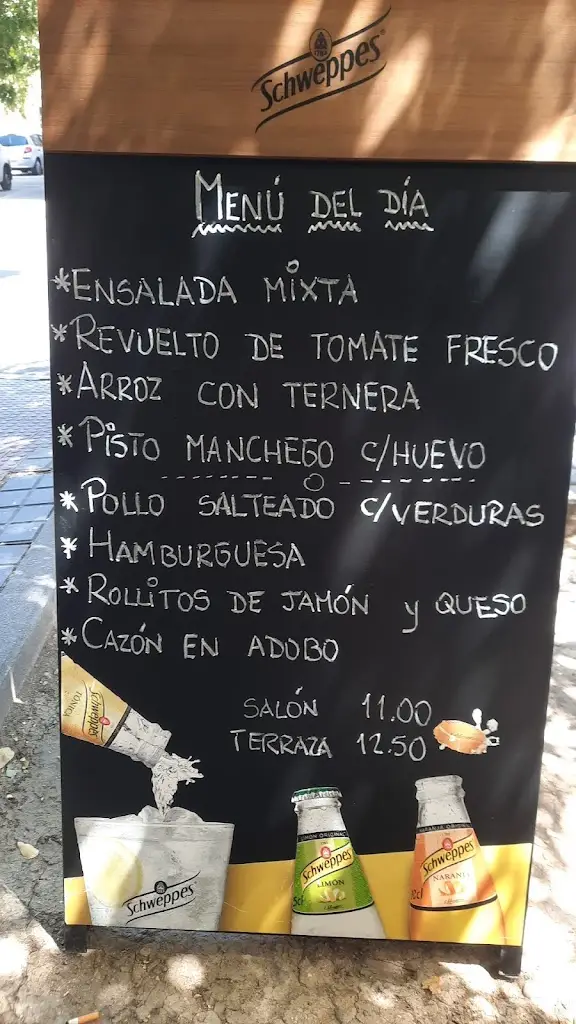 Schweppes
MENÚ DEL DÍA
*ENSALADA MIXTA
*REVUELTO DE TOMATE FRESCO
*ARROZ CON TERNERA
*PISTO MANCHEGO C/HUEVO
*POLLO SALTEADO C/VERDURAS
*HAMBURGUESA
*ROLLITOS DE JAMÓN y QUESO
*CAZÓN EN ADOBO
SALÓN 11.00
TERRAZA 12.50
Schweppes
TÓNICA
Schweppes
LIMÓN
Schweppes
NARANJA
Schweppes